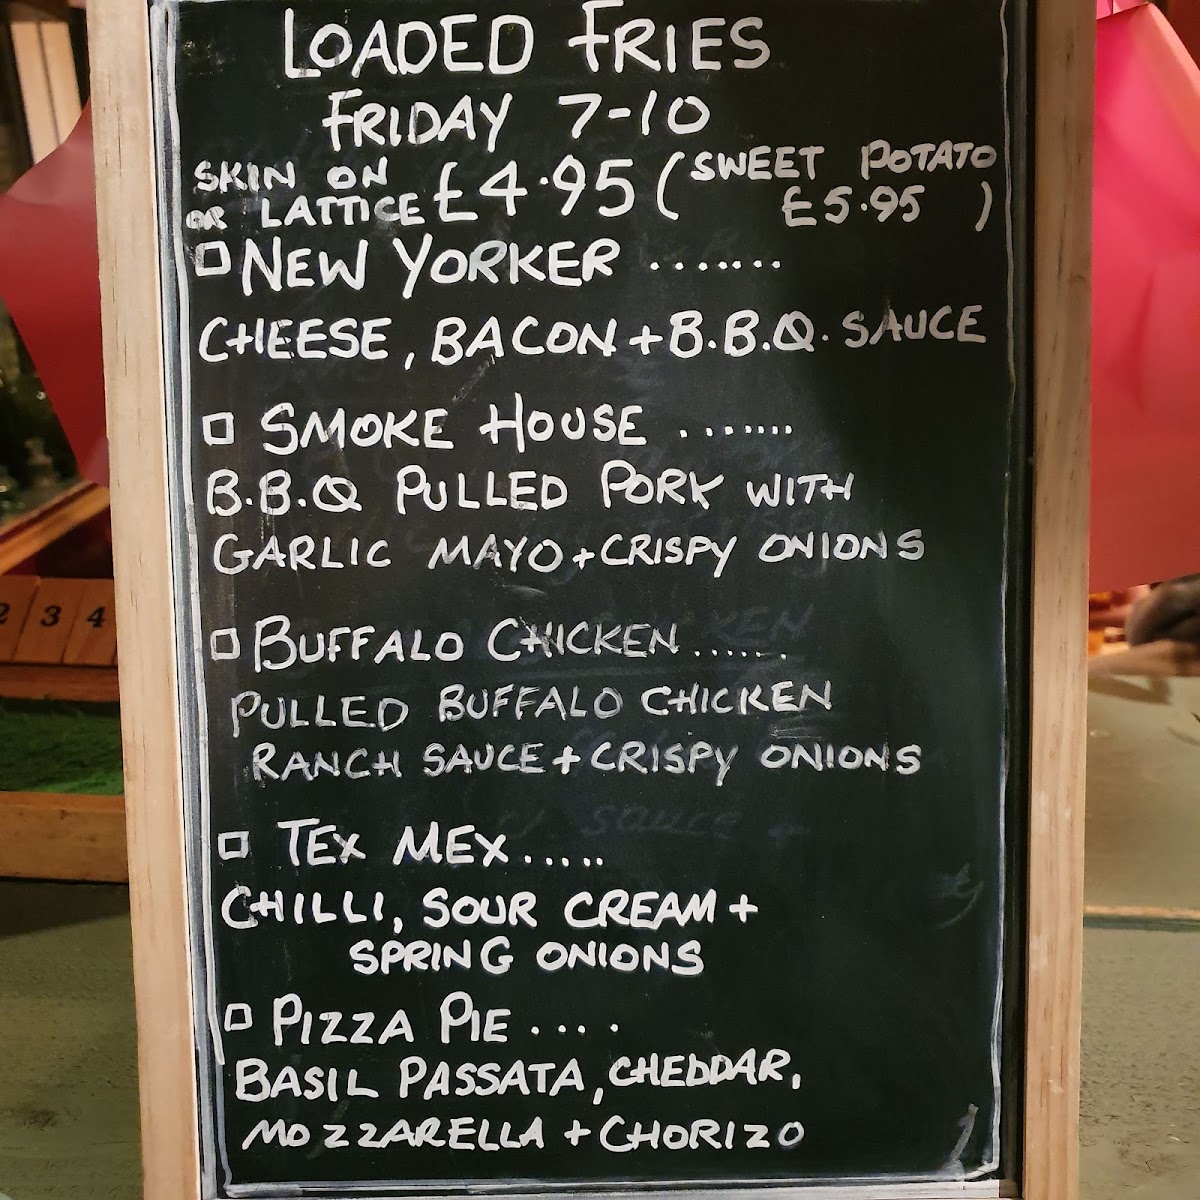 LOADED FRIES
FRIDAY 7-10
SKIN ON
OR LATTICE £4.95 (SWEET POTATO
£5.95 )
□ NEW YORKER .......
CHEESE, BACON + B.B.Q. SAUCE
□ SMOKE HOUSE .......
B.B.Q PULLED PORK WITH
GARLIC MAYO + CRISPY ONIONS
□ BUFFALO CHICKEN ......
PULLED BUFFALO CHICKEN
RANCH SAUCE + CRISPY ONIONS
□ TEX MEX .....
CHILLI, SOUR CREAM +
SPRING ONIONS
□ PIZZA PIE ....
BASIL PASSATA, CHEDDAR,
MOZZARELLA + CHORIZO
2 3 4